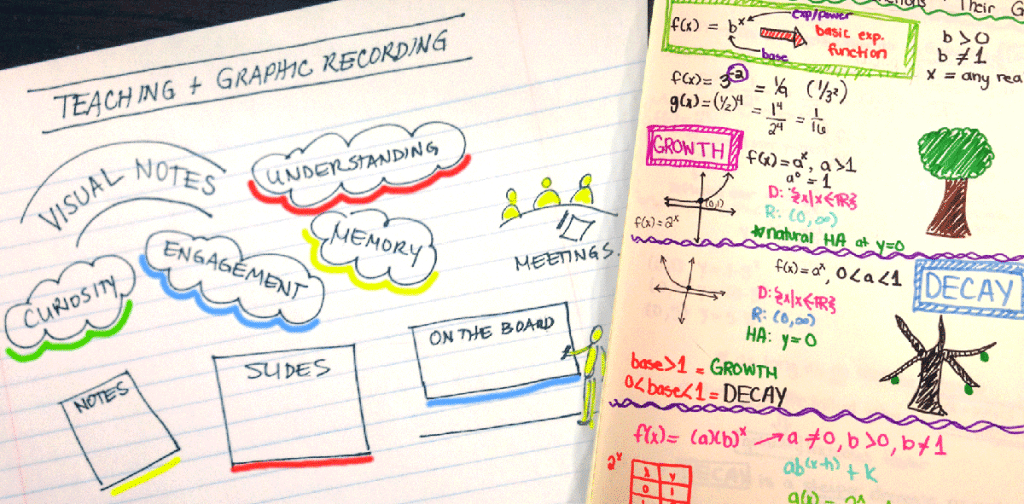 TEACHING + GRAPHIC RECORDING
VISUAL NOTES
UNDERSTANDING
MEMORY
ENGAGEMENT
CURIOSITY
MEETINGS.
ON THE BOARD
SLIDES
NOTES
Their G
exp/power
f(x) = bˣ
base
basic exp.
function
b > 0
b ≠ 1
x = any rea
f(x) = 3⁻² = 1/9 (1/3²)
g(x) = (1/2)⁴ = 1⁴/2⁴ = 1/16
GROWTH
f(x) = aˣ, a > 1
a⁰ = 1
D: {x|x∈ℝ}
R: (0, ∞)
natural HA at y=0
(0,1)
f(x) = 2ˣ
f(x) = aˣ, 0<a<1
DECAY
D: {x|x∈ℝ}
R: (0, ∞)
HA: y=0
base>1 = GROWTH
0<base<1 = DECAY
f(x) = (a)(b)ˣ → a ≠ 0, b > 0, b ≠ 1
ab⁽ˣ⁻ʰ⁾ + k
2ˣ
x y
0 1